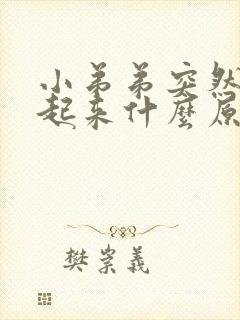 小弟弟突然
起来什麼原
樊崇義